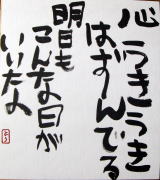 心うきうき
はずんでる
明日も
こんな日が
いいたよ